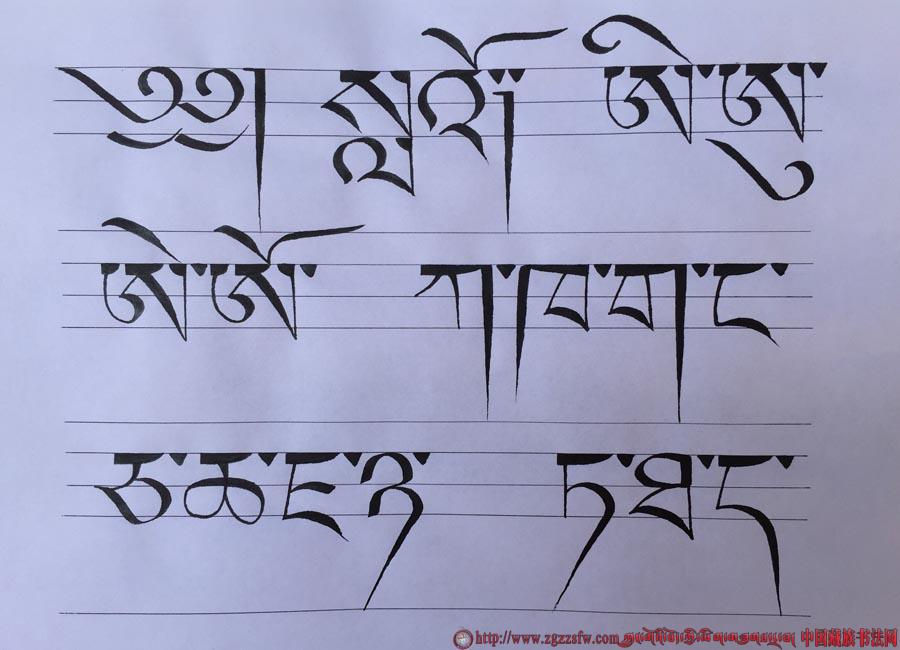 ༄༅། ཨི་ཨུ་
ཨེ་ཨོ་ ཀ་ཁ་ག་ང་
ཅ་ཆ་ཇ་ཉ་ ཏ་ཐ་ད་
http://www.zgzzsfw.com 中国藏族书法网